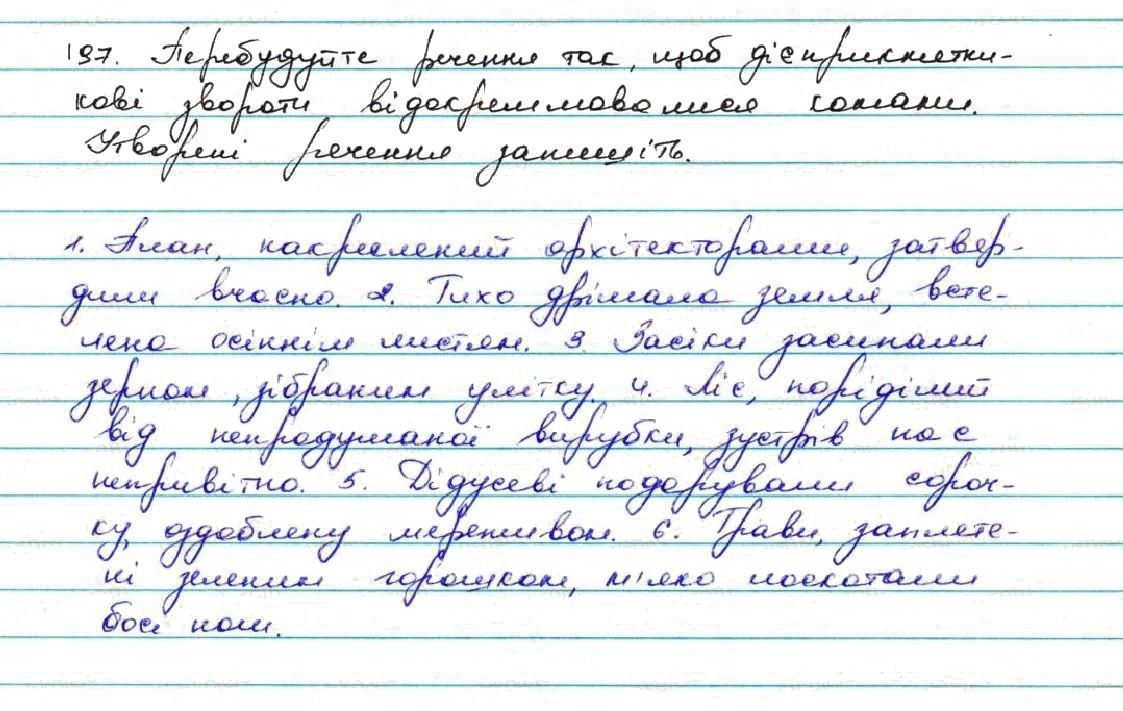 197. Перебудуйте речення так, щоб дієприкметни-
кові звороти відокремлювалися комами.
Утворені речення запишіть.
1. План, накреслений архітекторами, затвер-
дили вчасно. 2. Тихо дрімала земля, всте-
лена осіннім листям. 3. Засіки засипали
зерном, зібраним улітку. 4. Ліс, поріділий
від непродуманої вирубки, зустрів нас
непривітно. 5. Дідусеві подарували сороч-
ку, оздоблену мереживом. 6. Трави, заплете-
ні зеленим горошком, м'яко лоскотали
босі ноги.